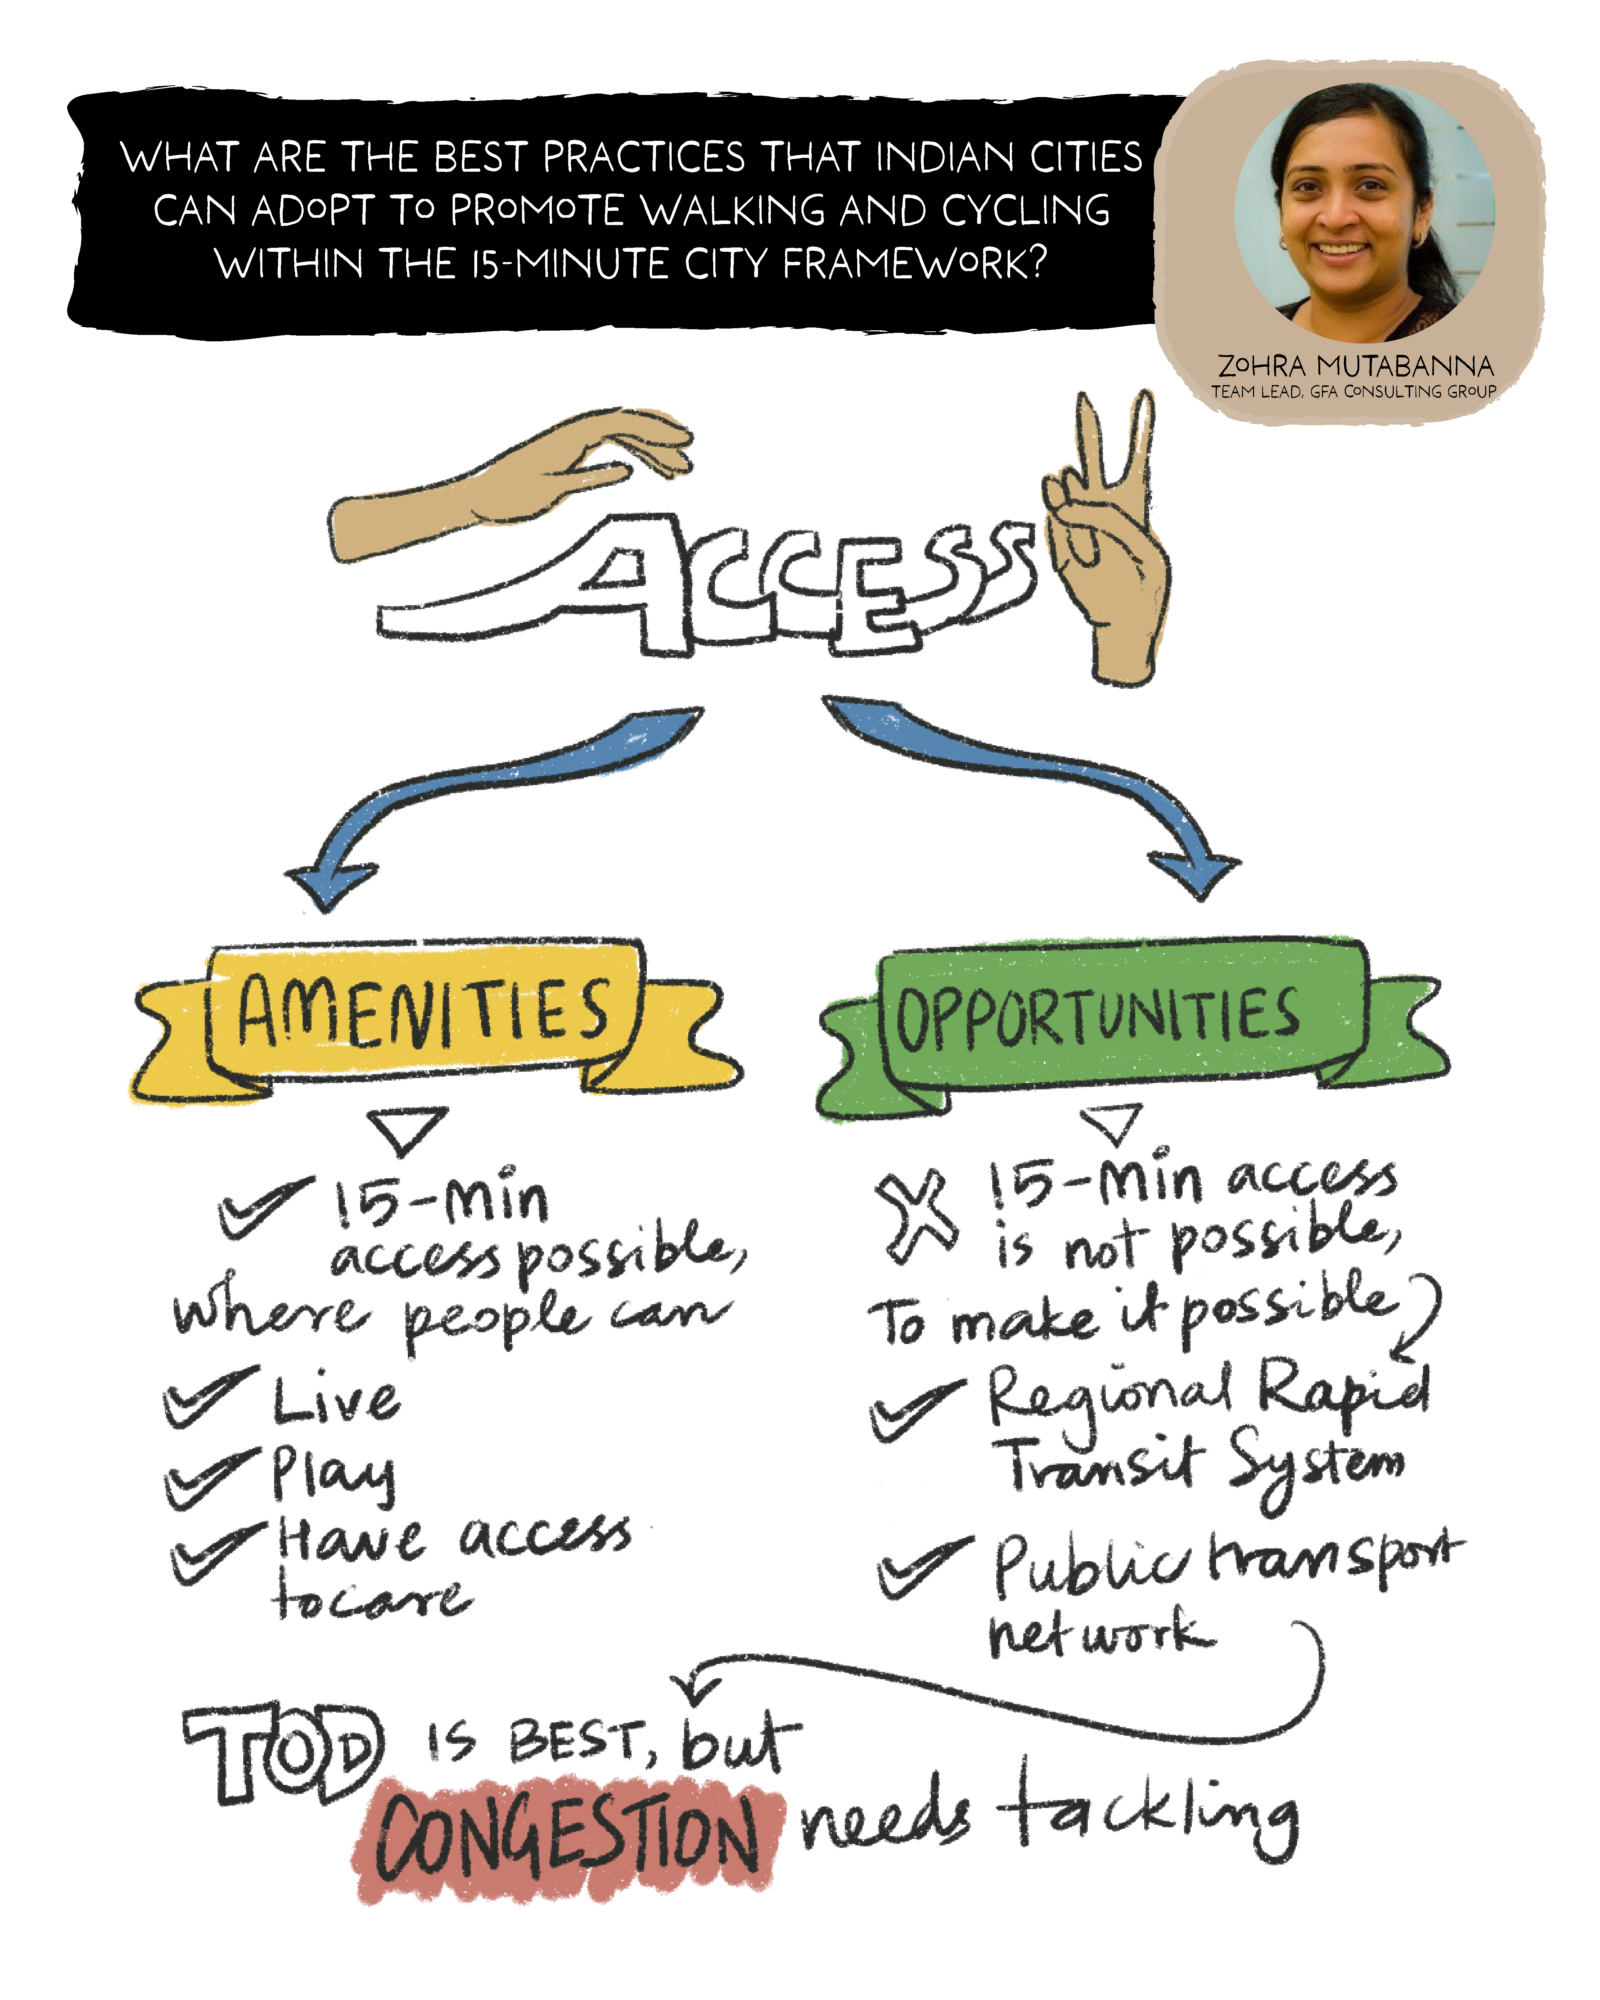 WHAT ARE THE BEST PRACTICES THAT INDIAN CITIES
CAN ADOPT TO PROMOTE WALKING AND CYCLING
WITHIN THE 15-MINUTE CITY FRAMEWORK?
ZOHRA MUTABANNA
TEAM LEAD, GFA CONSULTING GROUP
ACCESS
AMENITIES
15-Min
access possible,
where people can
Live
Play
Have access
to care
OPPORTUNITIES
15-Min access
is not possible,
To make it possible
Regional Rapid
Transit System
Public transport
network
TOD IS BEST, but
CONGESTION needs tackling